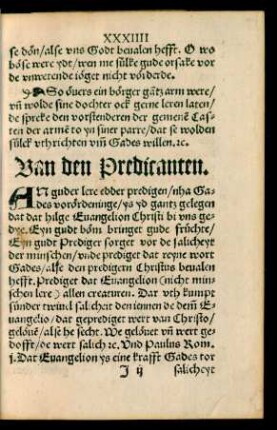 XXXIIII
se dön/ alse vns Godt beualen hefft. O wo
böse were ydt/ wen me sülke gude orsake vor
de vnwetende iöget nicht vörderde.
So öuers ein börger gātz arm were/
vn̄ wolde sine dochter ock gerne leren laten/
de spreke den vorstenderen der gemenē Cas-
ten der armē to yn siner parre/ dat se wolden
sülck vthrichten vm̄ Gades willen. ꝛc.
Van den Predicanten.
AN guder lere edder predigen/ nha Ga-
des vorördeninge/ ys yd gantz gelegen
dat dat hilge Euangelion Christi bi vns ge-
dye. Eyn gudt böm bringet gude früchte/
Eyn gudt Prediger sorget vor de salicheyt
der minschen/ vnde prediget dat reyne wort
Gades/ alse den predigern Christus beualen
hefft. Prediget dat Euangelion (nicht min-
schen lere) allen creaturen. Dar vth kumpt
sünder twiuel salicheit den iennen de dem̄ Eu-
angelio/ dat geprediget wert van Christo/
gelöuē/ alse he secht. We gelöuet vn̄ wert ge-
dofft/ de wert salich ꝛc. Vnd Paulus Rom.
j. Dat Euangelion ys eine krafft Gades tor
J ij
salicheyt